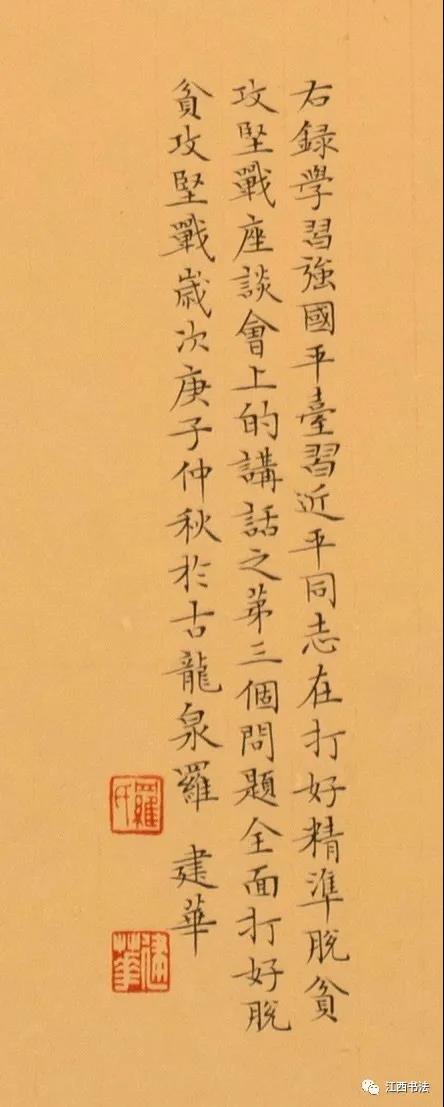 右録學習強國平臺習近平同志在打好精準脫貧
攻堅戰座談會上的講話之第三個問題全面打好脫
貧攻堅戰歲次庚子仲秋於古龍泉羅 建華
羅氏
建華
江西书法